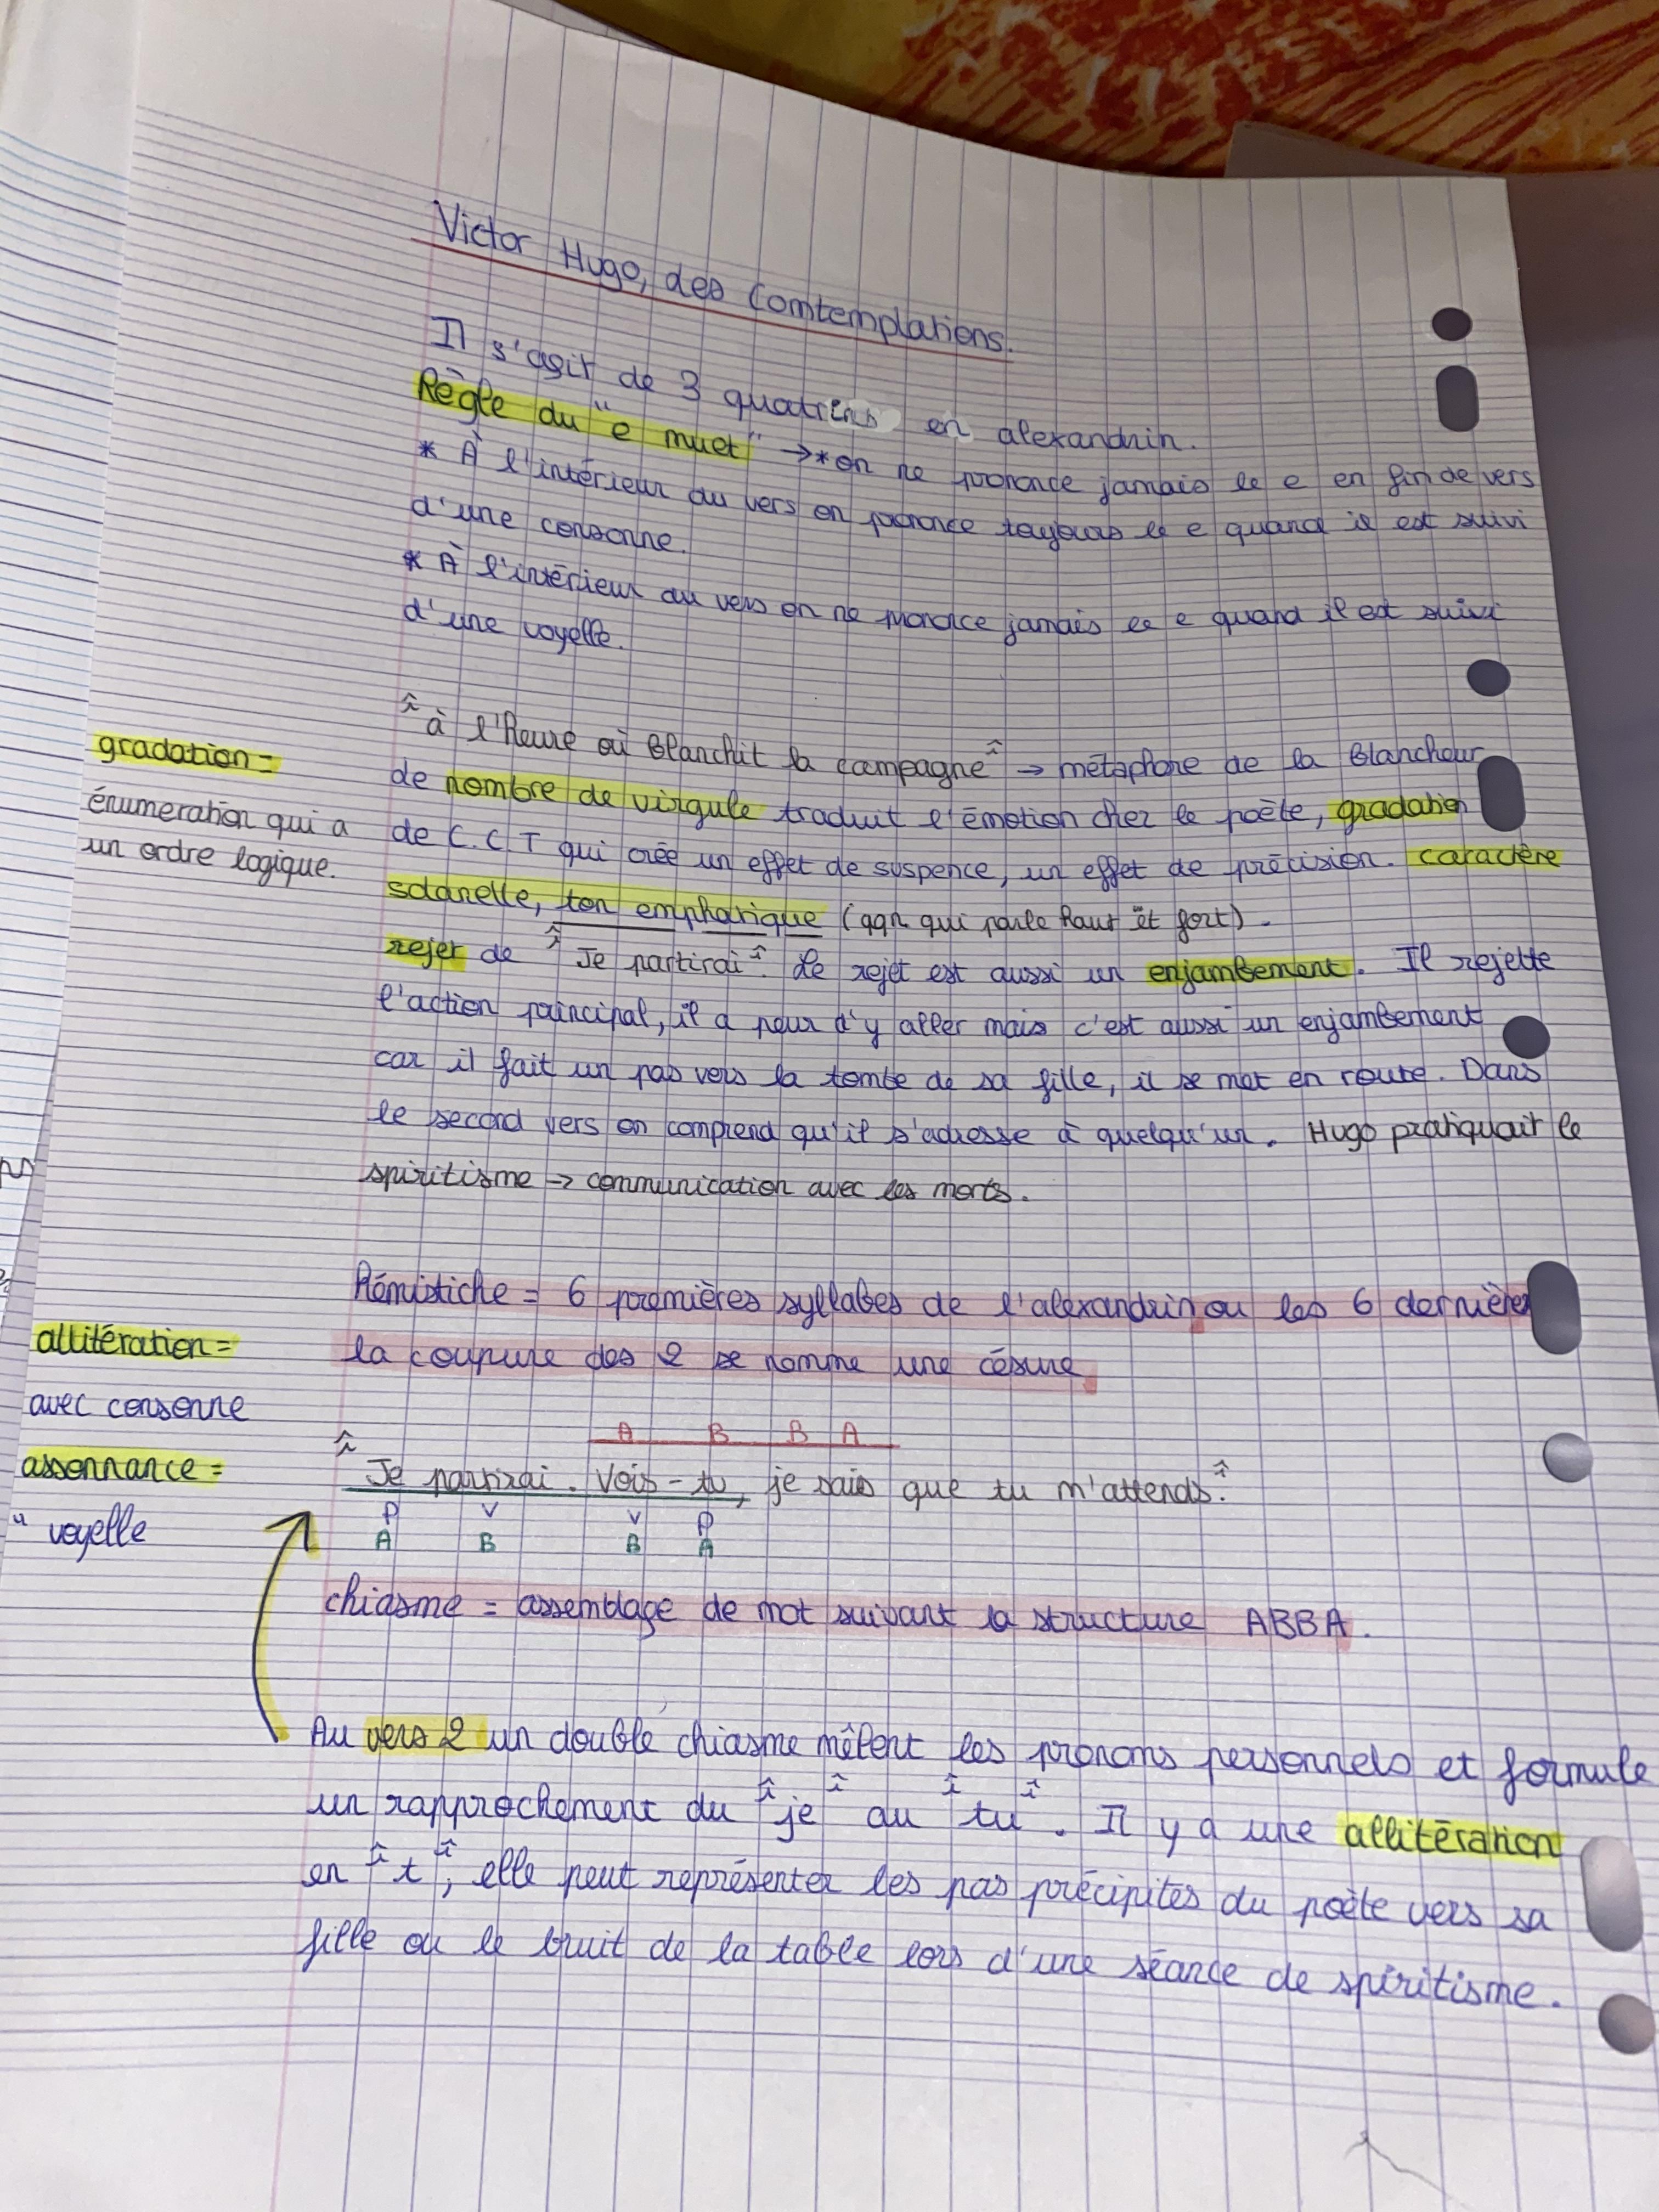 Victor Hugo, des Comtemplations.
Il s'agit de 3 quatrins en alexandrin.
Règle du "e muet" → * on ne prononce jamais le e en fin de vers
* À l'intérieur du vers on prononce toujours le e quand il est suivi
d'une consonne.
* À l'intérieur du vers on ne prononce jamais le e quand il est suivi
d'une voyelle.
"à l'heure où blanchit la campagne" → métaphore de la blancheur
gradation =
énumeration qui a
un ordre logique.
de nombre de virgule traduit l'émotion chez le poète, gradation
de C.C.T qui crée un effet de suspence, un effet de précision. caractère
solanelle, ton emphatique (qqn qui parle haut et fort).
rejet de "Je partirai". Le rejet est aussi un enjambement. Il rejette
l'action principal, il a peur d'y aller mais c'est aussi un enjambement
car il fait un pas vers la tombe de sa fille, il se met en route. Dans
le second vers on comprend qu'il s'adresse à quelqu'un. Hugo pratiquait le
spiritisme → communication avec les morts.
hémistiche = 6 premières syllabes de l'alexandrin ou les 6 dernières
la coupure des 2 se nomme une césure
allitération =
avec consonne
assonnance =
" voyelle
A B B A
"Je partirai. Vois-tu, je sais que tu m'attends."
P V V P
A B B A
chiasme = assemblage de mot suivant la structure ABBA.
Au vers 2 un double chiasme mêlent les pronoms personnels et formule
un rapprochement du "je" au "tu". Il y a une allitération
en "t", elle peut représenter les pas précipités du poète vers sa
fille ou le bruit de la table lors d'une séance de spiritisme.